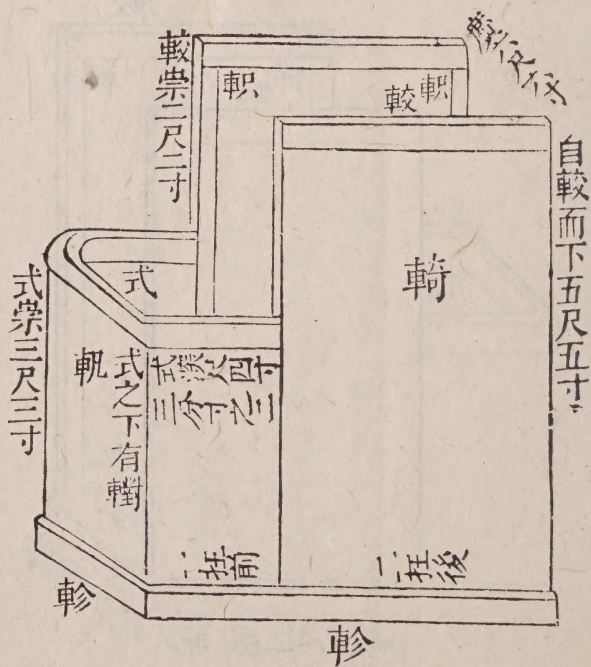 尺六寸
較崇二尺二寸
軹
軹
較
自較而下五尺五寸
輢
式
式崇三尺三寸
軓
式之下有轛
式深尺四寸
三分寸之二
一在前
二在後
軫
軫